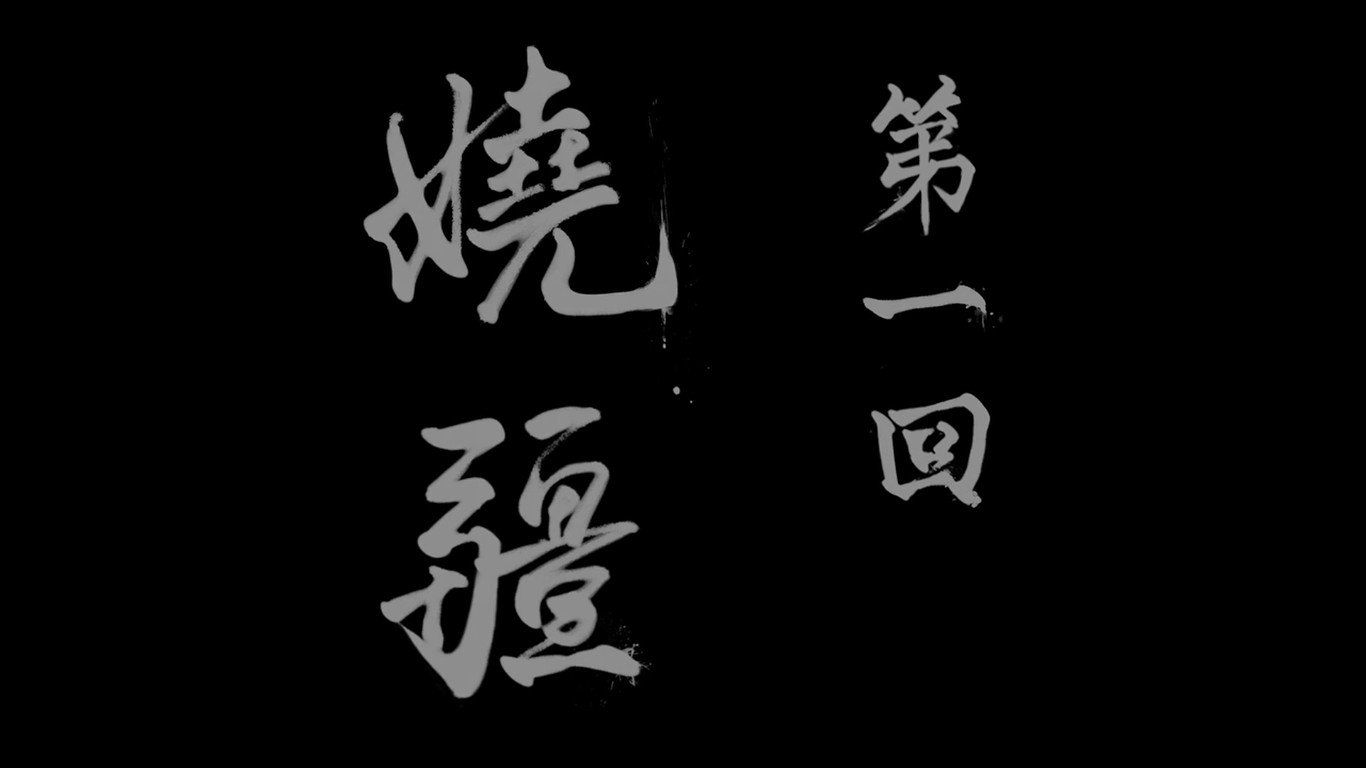 第一回
嬈疆